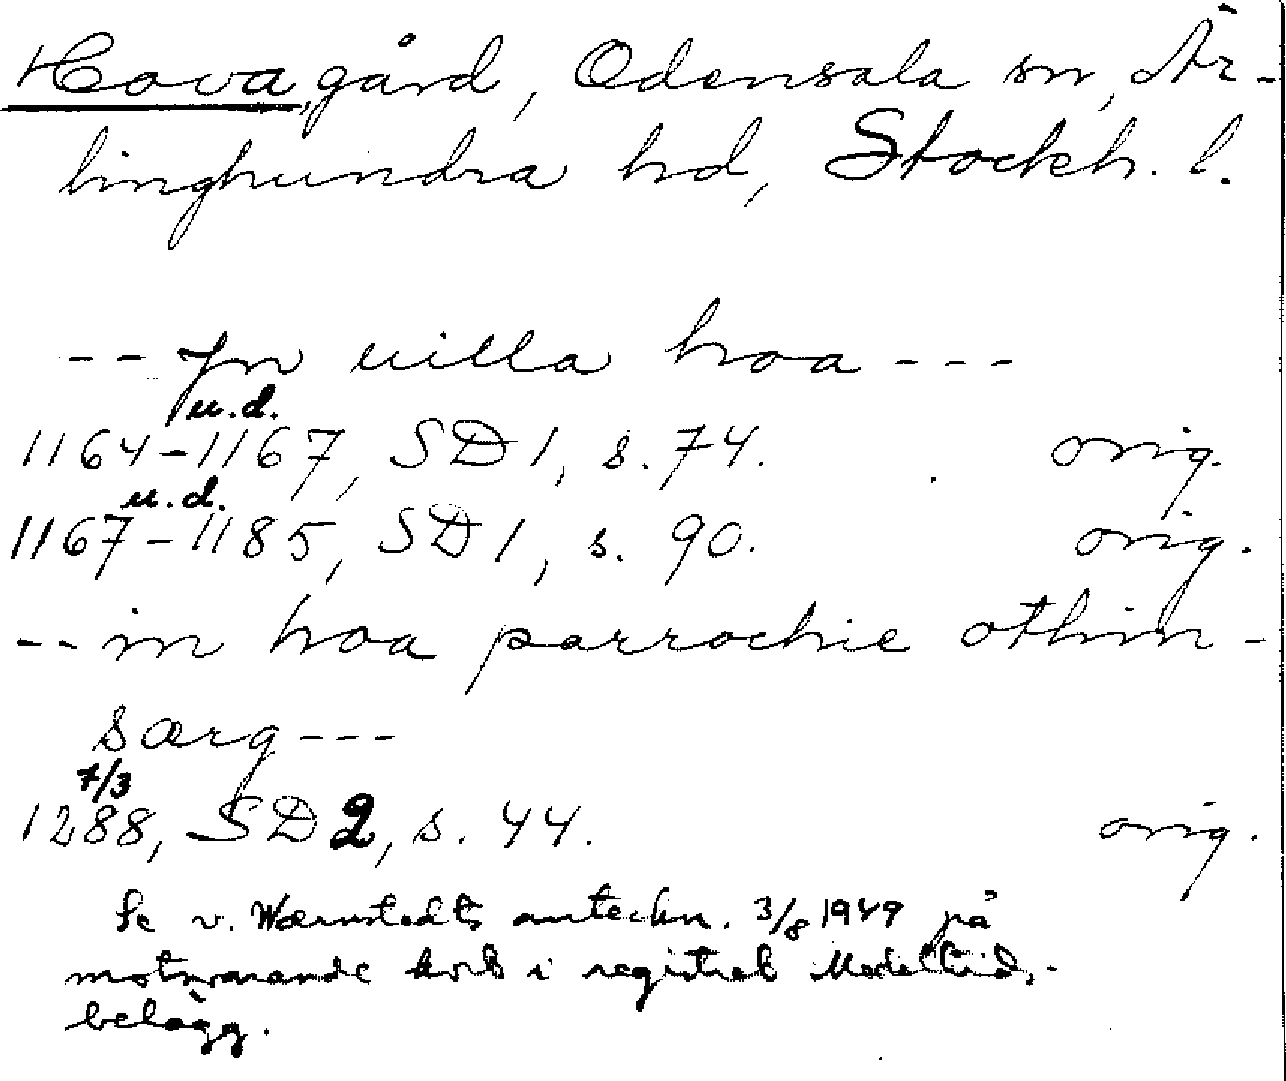 Hova, gård, Odensala sn, Är-
linghundra hd, Stockh. l.
-- Jn uilla hoa ---
u.d.
1164-1167, SD 1, s. 74. orig.
u.d.
1167-1185, SD 1, s. 90. orig.
-- in hoa parrochie othin-
særg ---
7/3
1288, SD 2, s. 44. orig.
Se v. Wærnstedts anteckn. 3/8 1949 på
motsvarande kort i registret Medeltids-
belägg.